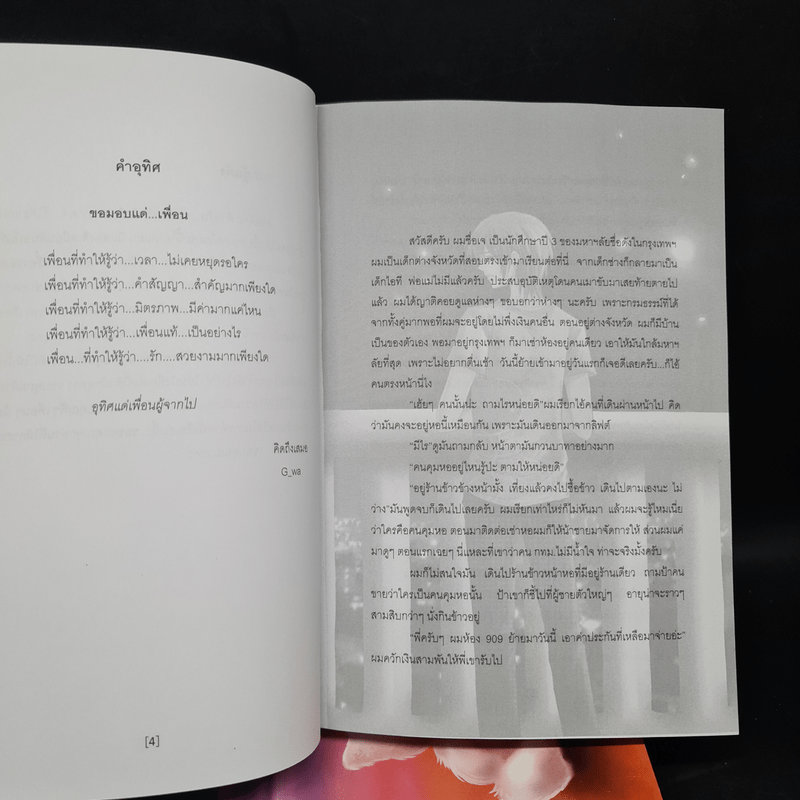 คำอุทิศ
ขอมอบแด่...เพื่อน
เพื่อนที่ทำให้รู้ว่า...เวลา...ไม่เคยหยุดรอใคร
เพื่อนที่ทำให้รู้ว่า...คำสัญญา...สำคัญมากเพียงใด
เพื่อนที่ทำให้รู้ว่า...มิตรภาพ...มีค่ามากแค่ไหน
เพื่อนที่ทำให้รู้ว่า...เพื่อนแท้...เป็นอย่างไร
เพื่อน...ที่ทำให้รู้ว่า....รัก....สวยงามมากเพียงใด
อุทิศแด่เพื่อนผู้จากไป
คิดถึงเสมอ
G_wa
[4]
สวัสดีครับ ผมชื่อเจ เป็นนักศึกษาปี 3 ของมหาฯลัยชื่อดังในกรุงเทพฯ
ผมเป็นเด็กต่างจังหวัดที่สอบตรงเข้ามาเรียนต่อที่นี่ จากเด็กช่างก็กลายมาเป็น
เด็กไอที พ่อแม่ไม่มีแล้วครับ ประสบอุบัติเหตุโดนคนเมาขับมาเสยท้ายตายไป
แล้ว ผมได้ญาติคอยดูแลห่างๆ ขอบอกว่าห่างๆ นะครับ เพราะกรมธรรม์ที่ได้
จากทั้งคู่มากพอที่ผมจะอยู่โดยไม่พึ่งเงินคนอื่น ตอนอยู่ต่างจังหวัด ผมก็มีบ้าน
เป็นของตัวเอง พอมาอยู่กรุงเทพฯ ก็มาเช่าห้องอยู่คนเดียว เอาให้มันใกล้มหาฯ
ลัยที่สุด เพราะไม่อยากตื่นเช้า วันนี้ย้ายเข้ามาอยู่วันแรกก็เจอดีเลยครับ...ก็ไอ้
คนตรงหน้านี่ไง
"เฮ้ยๆ คนนั้นน่ะ ถามไรหน่อยดิ"ผมเรียกไอ้คนที่เดินผ่านหน้าไป คิด
ว่ามันคงจะอยู่หอนี้เหมือนกัน เพราะมันเดินออกมาจากลิฟต์
"มีไร"ดูมันถามกลับ หน้าตามันกวนบาทาอย่างมาก
"คนคุมหออยู่ไหนรู้ปะ ตามให้หน่อยดิ"
"อยู่ร้านข้าวข้างหน้ามั้ง เที่ยงแล้วคงไปซื้อข้าว เดินไปตามเองนะ ไม่
ว่าง"มันพูดจบก็เดินไปเลยครับ ผมเรียกเท่าไหร่ก็ไม่หันมา แล้วผมจะรู้ไหมเนี่ย
ว่าใครคือคนคุมหอ ตอนมาติดต่อเช่าหอผมก็ให้น้าชายมาจัดการให้ ส่วนผมแค่
มาดูๆ ตอนแรกเฉยๆ นี่แหละที่เขาว่าคน กทม.ไม่มีน้ำใจ ท่าจะจริงมั้งครับ
ผมก็ไม่สนใจมัน เดินไปร้านข้าวหน้าหอที่มีอยู่ร้านเดียว ถามป้าคน
ขายว่าใครเป็นคนคุมหอนั้น ป้าเขาก็ชี้ไปที่ผู้ชายตัวใหญ่ๆ อายุน่าจะราวๆ
สามสิบกว่าๆ นั่งกินข้าวอยู่
"พี่ครับๆ ผมห้อง 909 ย้ายมาวันนี้ เอาค่าประกันที่เหลือมาจ่ายอ่ะ"
ผมควักเงินสามพันให้พี่เขารับไป